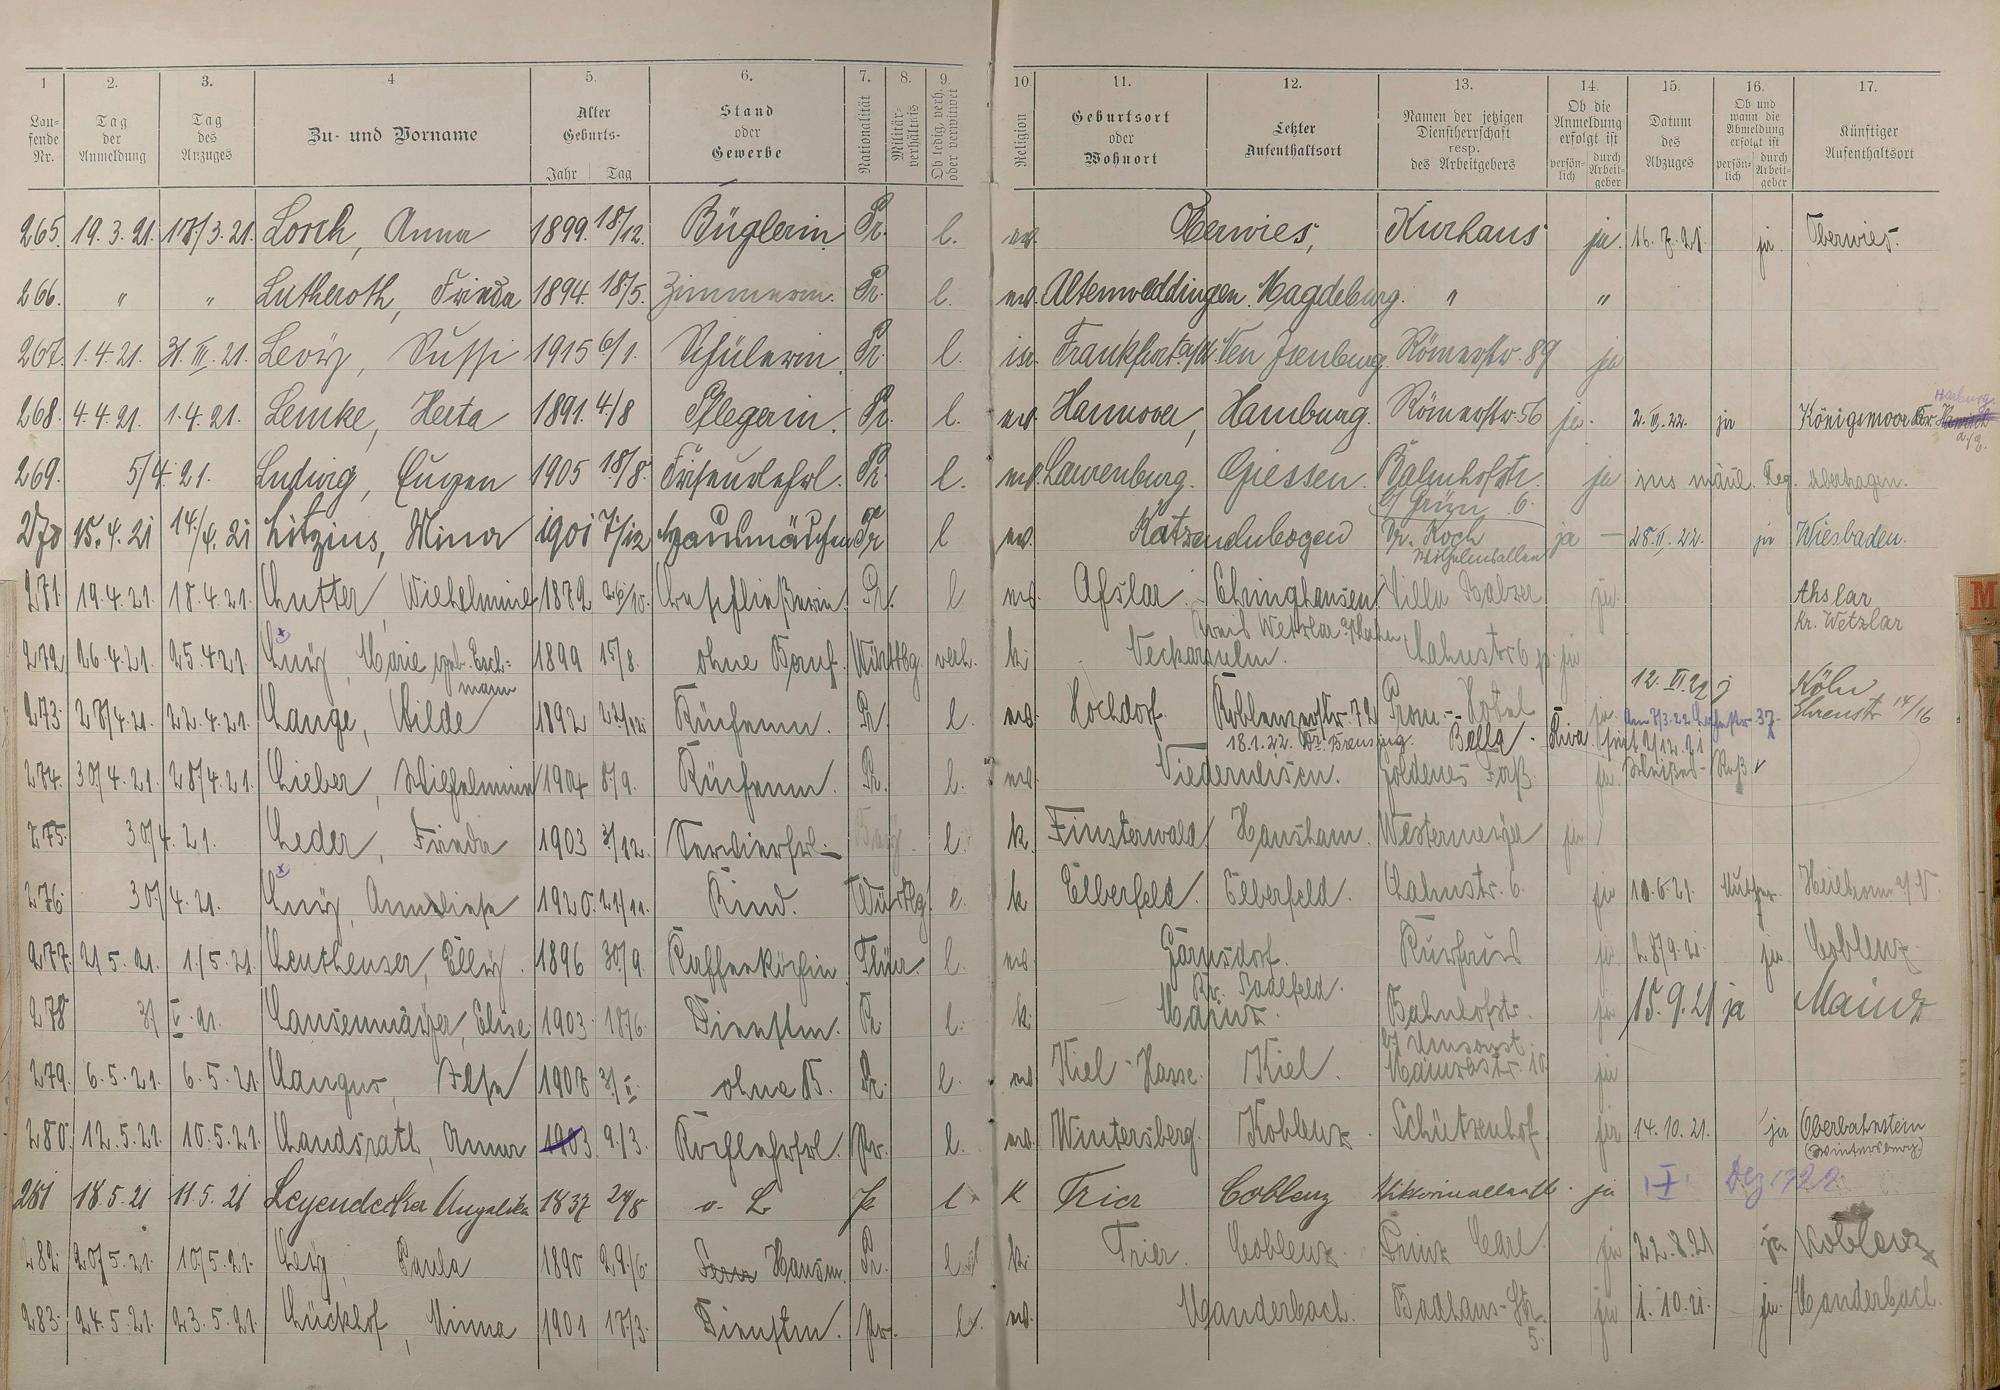 1 2. 3. 4 5. 6. 7. 8. 9. 10. 11. 12. 13. 14. 15. 16. 17.
Laufende Nr. Tag der Anmeldung Tag des Anzuges Zu- und Vorname Alter Geburts- Jahr Tag Stand oder Gewerbe Nationalität Militärverhältnis Ob ledig, verh. oder verwitwet Religion Geburtsort oder Wohnort Letzter Aufenthaltsort Namen der jetzigen Dienstherrschaft resp. des Arbeitgebers Ob die Anmeldung erfolgt ist persönlich durch Arbeitgeber Datum des Abzuges Ob und wann die Abmeldung erfolgt ist persönlich durch Arbeitgeber Künftiger Aufenthaltsort
265. 19.3.21. 18/3.21. Losch, Anna 1899. 18/12. Büglerin Pr. l. ev. Oberwies, Kurhaus ja. 16.7.21. ja. Oberwies.
266. " " Lutheroth, Frieda 1894. 18/5. Zimmerm. Pr. l. ev. Altenweddingen. Magdeburg. " "
267. 1.4.21. 31.III.21. Levÿ, Sussi 1915 6/1. Schülerin Pr. l. isr. Frankfurt a/M. Neu Isenburg. Römerstr. 89 ja
268. 4.4.21. 1.4.21. Lemke, Herta 1891. 4/8 Pflegerin. Pr. l. ev. Hannover, Hamburg. Römerstr. 56 ja. ja Königsmoor Kr. Harburg a/E.
269. 5/4.21. Ludwig, Eugen 1905 18/8. Friseurlehrl. Pr. l. ev. Laurenburg. Giessen. Bahnhofstr. ja ins männl. Reg. übertragen.
b/ Grün 6.
270 15.4.21 14/4.21 Litzius, Mina 1901 7/12 Hausmädchen Pr l ev. Katzenelnbogen Dr. Koch ja — ja Wiesbaden.
Wilhelmsallee
271. 19.4.21. 18.4.21. Lutter, Wilhelmine 1879 Beschließerin. Pr. l ev. Aßlar. Ehringhausen Villa Balzer ja. Ahslar
Kreis Wetzlar a/Lahn Kr. Wetzlar
272. 26.4.21. 25.4.21. Luÿ, Marie geb. Esch=mann 1899 15/8. ohne Beruf. Württbg. verh. k. Neckarsulm. Lahnstr. 6 ja
273. 28/4.21. 22.4.21. Lange, Hilde 1892 Küchenm. Pr. l. ev. Hochdorf. Koblenzerstr. 72 Prom.-Hotel ja. Köln
Ehrenstr. 14/16
18.1.22. Dr. Breusing. Bella Riva
274. 30/4.21. 28/4.21. Lieber, Wilhelmine 1904 8/9. Küchenm. Pr. l. ev. Niederneisen. Goldenes Faß. ja.
275. 30/4.21. Leder, Frieda 1903 3/12. Servierfrl. l. k. Finsterwald Hausham. Westermeÿer ja
276. 30/4.21. Luÿ, Anneliese 1920. 21/11. Kind. Württbg. l. k Elberfeld. Elberfeld. Lahnstr. 6. ja 10.6.21. Mutter. Heilbronn a/N.
277. 2/5.21. 1/5.21. Leutheuser, Ellÿ. 1896 30/9. Kaffeeköchin Thür. l. ev. Görnsdorf. Kurhaus ja. 28/9.21. ja. Coblenz.
278 3/V.21. Lansenmaÿer, Elise 1903. 18/6. Dienstm. Pr. l. k. Mainz. Bahnhofstr. ja 15.9.21 ja Mainz
b/ Umsonst
279. 6.5.21. 6.5.21. Ilse 3/V. ohne B. Pr. l. ev Kiel-Hasse. Kiel. Mainzerstr. 10. ja
280. 12.5.21. 10.5.21. Landsrath, Anna 1903. 9/3. Kochlehrfrl. Pr. l. ev. Wintersberg. Koblenz. Schützenhof ja 14.10.21. ja Oberlahnstein
(Wintersberg)
281 18.5.21 11.5.21 Leyendecker Angelika 1837 24/8 o. B. Pr l. K Trier Coblenz Viktoriaallee 16. ja Dez 1922
282. 20/5.21. 10/5.21. Leÿ, Paula 1890 29/6. Hausm. Pr. l. k. Trier. Coblenz. Prinz Carl. ja 22.8.21 ja Koblenz
283. 24.5.21. 23.5.21. Lückhof, Minna 1901 17/3. Dienstm. Pr. l. ev. Manderbach. Badhaus-Str. 5. ja 1.10.21. ja. Manderbach.